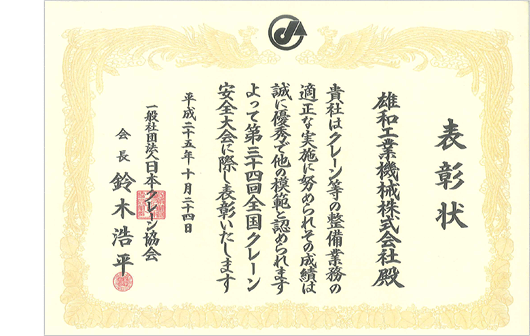 表彰状
雄和工業機械株式会社殿
貴社はクレーン等の整備業務の
適正な実施に努められその成績は
誠に優秀で他の模範と認められます
よって第三十四回全国クレーン
安全大会に際し表彰いたします
平成二十五年十月二十四日
一般社団法人日本クレーン協会
会長 鈴木浩平